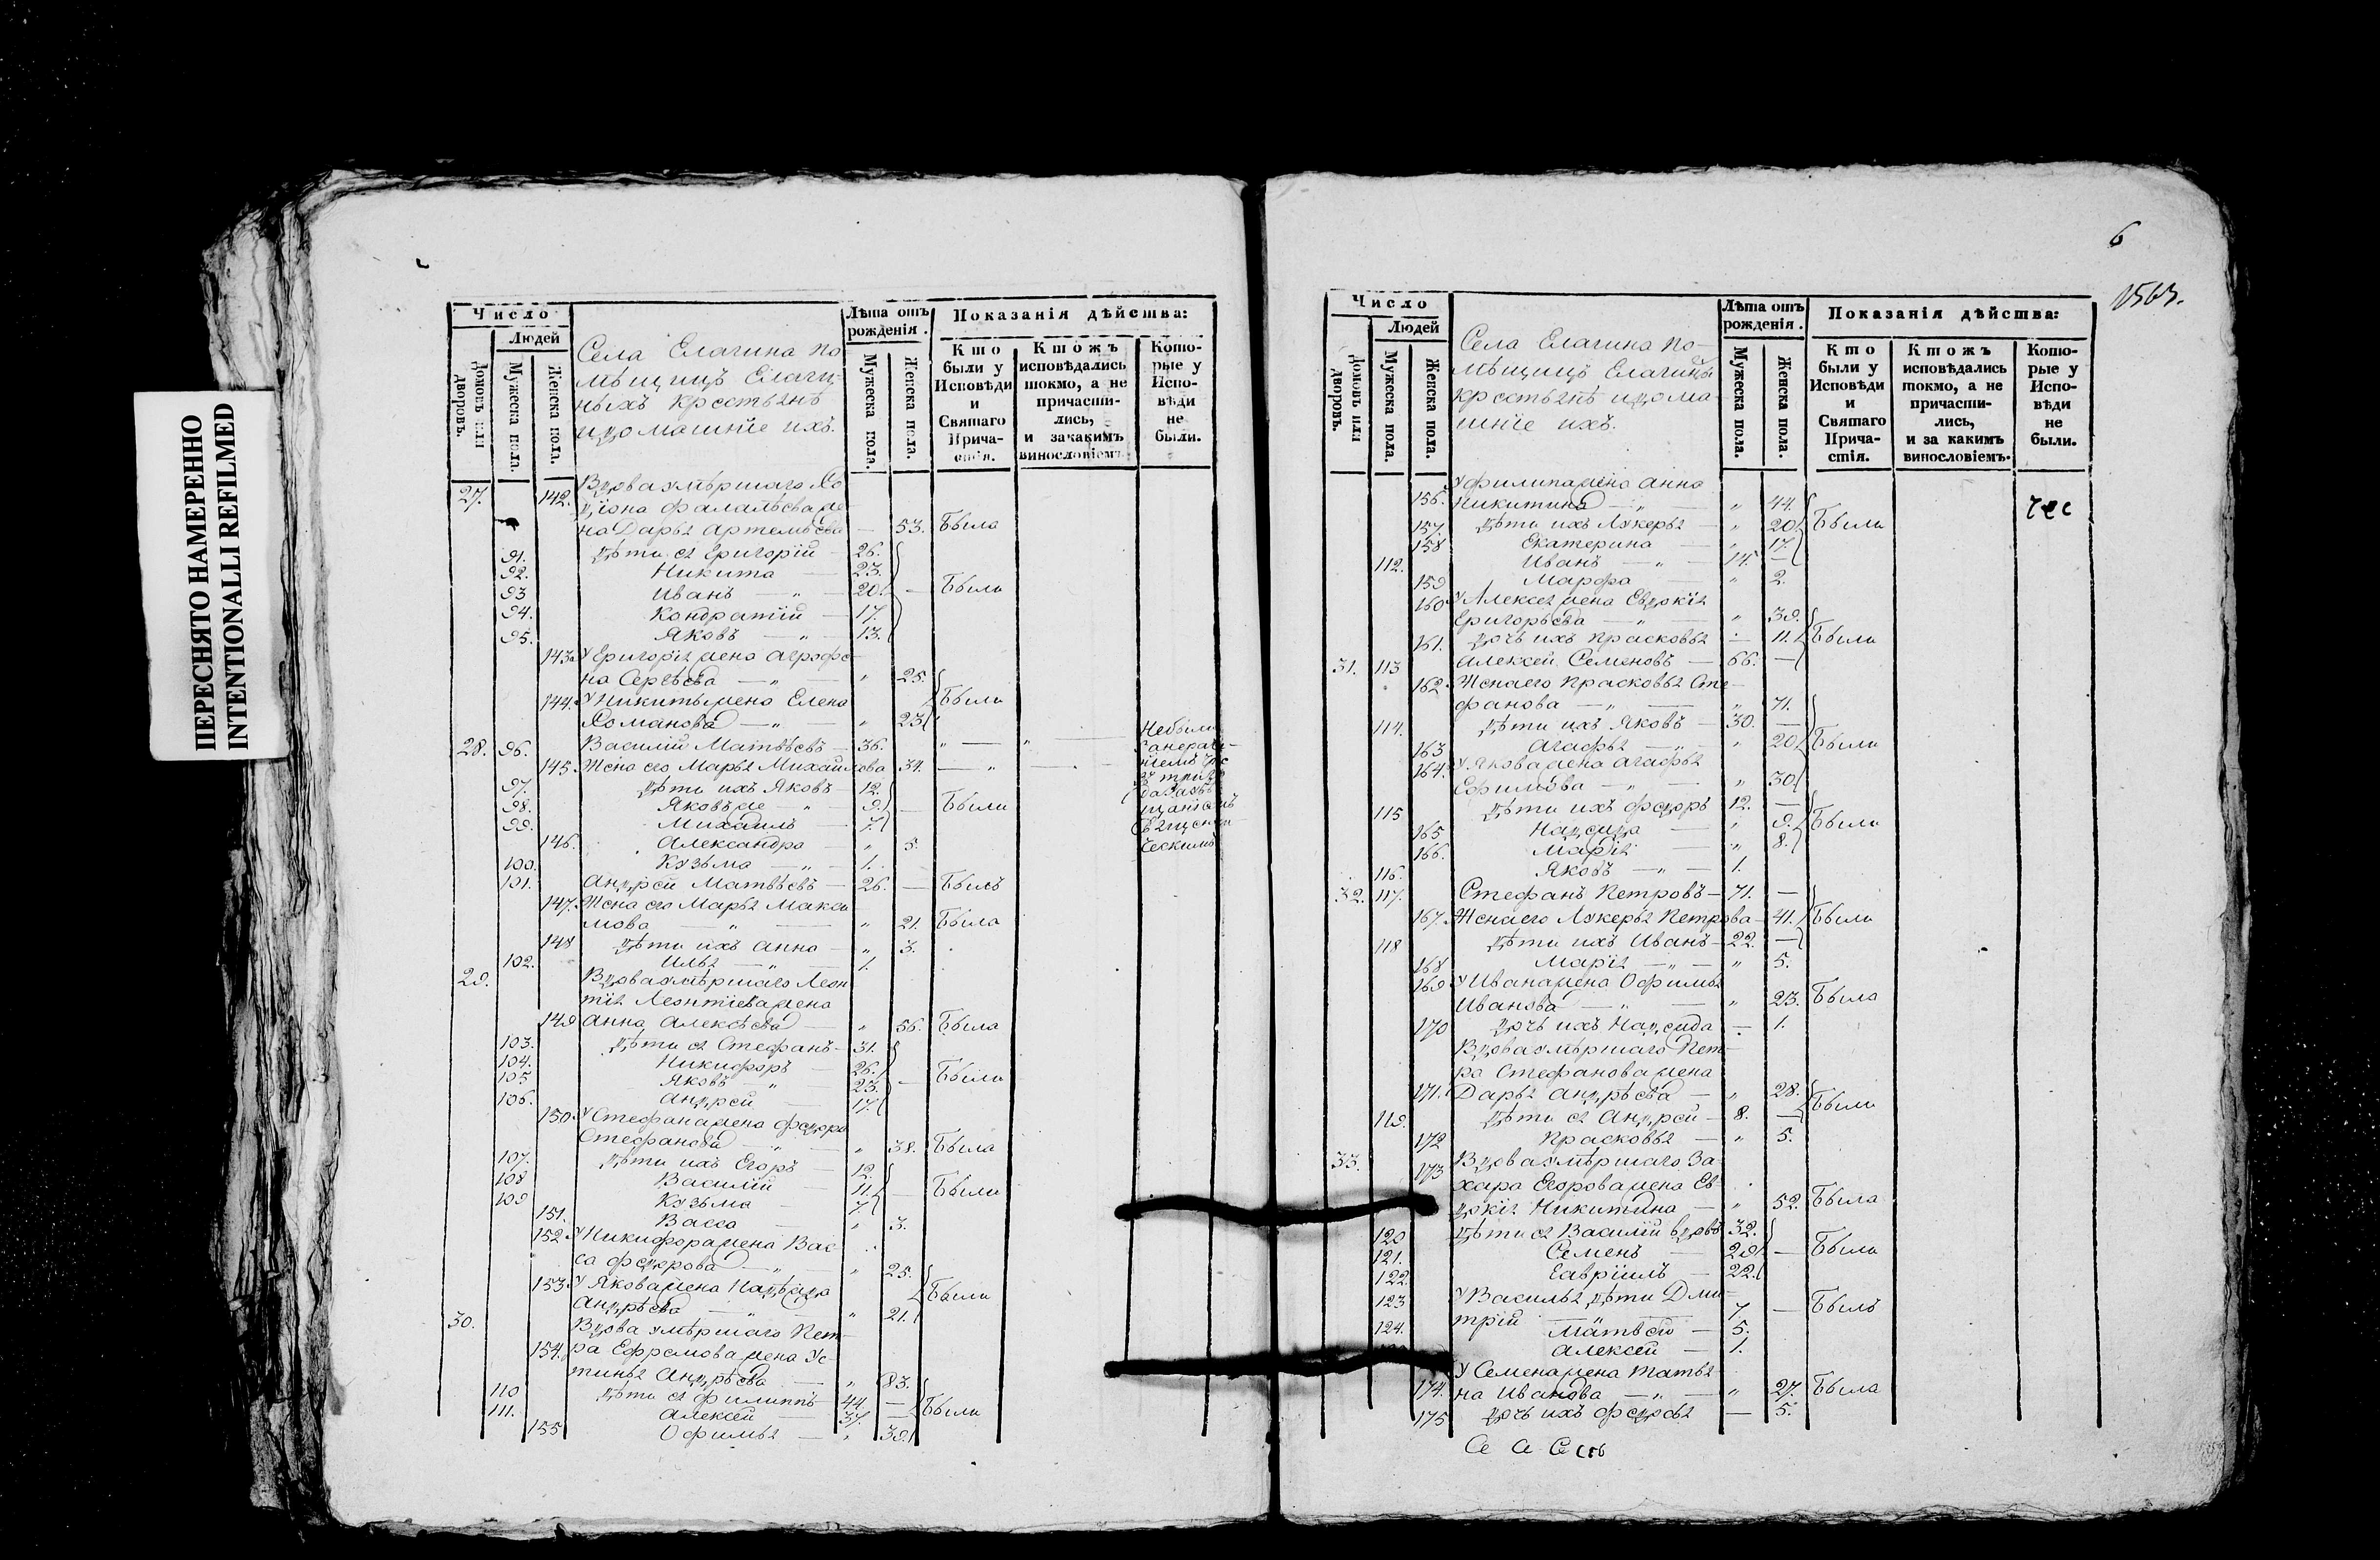 ПЕРЕСНЯТО НАМЕРЕННО
INTENTIONALLI REFILMED
Число
Людей
Домовъ или дворовъ.
Мужеска пола.
Женска пола.
Села Елагина по
мѣщицъ Елаги
ныхъ крестьянъ
и домашніе ихъ.
Лѣта отъ рожденія.
Мужеска пола.
Женска пола.
Показанія дѣйства:
Кто были у Исповѣди и Святаго Причастія.
Ктожъ исповѣдались токмо, а не причастились, и за какимъ винословіемъ.
Которые у Исповѣди не были.
27. 142. Вдова умѣршаго
діона Фалалѣева же
на Дарья Артемьева — 53. Была
91. дѣти ея Григорій 26.
92. Никита 23.
93 Иванъ — „ — 20. — Были
94. Кондратій 17.
95. Яковъ — „ — 13.
143. У Григорія жена Аграфе
на Сергѣева — „ — „ 25.
144. У Никиты жена Елена Были
Романова — „ — „ 23.
28. 96. Василій Матвѣевъ 36. „ — „ — Небыли
145. Жена его Марья Михайлова 34. — „ —
97. дѣти ихъ Яковъ 12.
98. Яковъ же — „ 9. — Были
99. Михаилъ 7.
146. Александра „ 5.
100. Кузьма — „ — 1.
101. Андрей Матвѣевъ — 26. — Былъ
147. Жена его Марья Макси
мова — „ — „ 21. Была
148 дѣти ихъ Анна — „ 3.
102. Илья — „ — 1.
29. Вдова умѣршаго Леон
тія Леонтіева жена
149 Анна Алексѣева — „ 56. Была
103. дѣти ея Стефанъ 31.
104. Никифоръ 26.
105 Яковъ — „ 23. — Были
106. Андрей 17.
150. У Стефана жена Федора
Стефанова — „ — „ 38. Была
107. дѣти ихъ Егоръ 12.
108 Василій 11. — Были
109 Кузьма 7.
151. Васса „ 3.
152. У Никифора жена Вас
са Федорова — „ — „ 25.
153. У Якова жена Надежда Были
Андрѣева — „ — „ 21.
30. Вдова умѣршаго Пет
154. ра Ефремова жена Ус
тинья Андрѣева — „ 83.
110 дѣти ея Филиппъ 44 —
111. Алексей 37. — Были
155 Офимья — „ 39.
6
1563.
Число
Людей
Домовъ или дворовъ.
Мужеска пола.
Женска пола.
Села Елагина по
мѣщицъ Елагины
крестьянъ и дома
шніе ихъ.
Лѣта отъ рожденія.
Мужеска пола.
Женска пола.
Показанія дѣйства:
Кто были у Исповѣди и Святаго Причастія.
Ктожъ исповѣдались токмо, а не причастились, и за какимъ винословіемъ.
Которые у Исповѣди не были.
У Филипа жена Анна
156. Никитина — „ — „ 44.
157. дѣти ихъ Лукерья — „ 20 Были
158 Екатерина — „ 17.
112. Иванъ — „ — 14. —
159 Марфа „ 2.
160 У Алексея жена Евдокія
Григорьева — „ — „ 39.
161. дочь ихъ Прасковья — 11. Были
31. 113 Алексей Семеновъ — 66. —
162. Жена его Прасковья Сте
фанова — „ — „ 71.
114. дѣти ихъ Яковъ — 30. —
163 Агафья — „ — „ 20 Были
164. У Якова жена Агафья
Ефимова — „ — „ 30
115 дѣти ихъ Федоръ 12. —
165 Надежда — „ 9. Были
166. Марія — „ 8.
116. Яковъ — „ — 1.
32. 117. Стефанъ Петровъ — 71. —
167. Жена его Лукерья Петрова — 41. Были
118 дѣти ихъ Иванъ — 22. —
168 Марія — „ — „ 5.
169 У Ивана жена Офимья
Иванова — „ — „ 23. Была
170 дочь ихъ Надежда — 1.
Вдова умѣршаго Пет
ра Стефанова жена
171. Дарья Андрѣева — „ 28.
119. дѣти ея Андрей — 8. — Были
172 Прасковья — „ 5.
33. 173 Вдова умѣршаго За
хара Егорова жена Ев
докія Никитина — „ 52. Была
120 дѣти ея Василій вдовъ 32.
121. Семенъ — 29 — Были
122. Гавріилъ — 22.
123 У Василья дѣти Дми
трій 7 — Былъ
124. Матвей — 5.
Алексей — 1.
У Семена жена Татья
174. на Иванова — „ — „ 27. Была
175 дочь ихъ Федосья — 5.